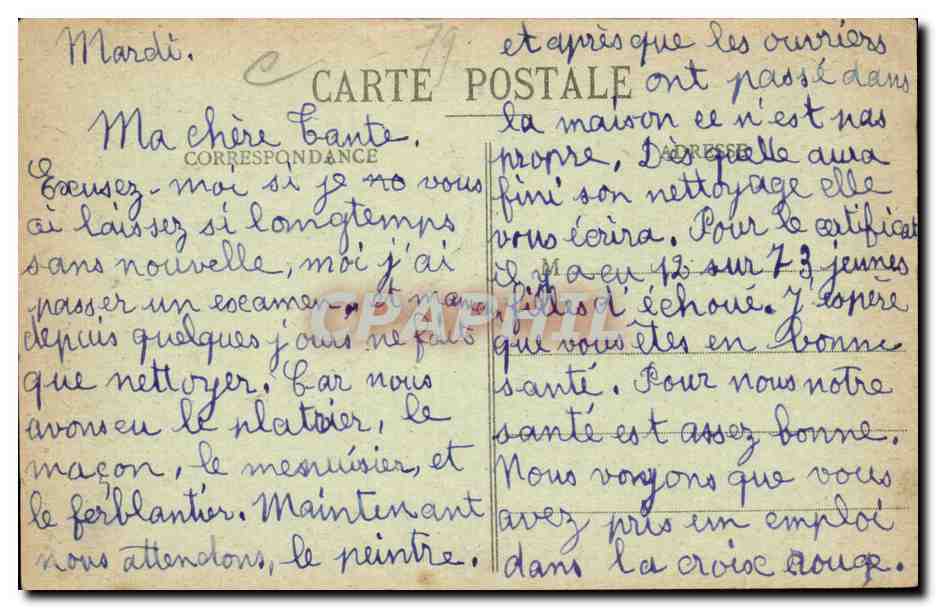 Mardi.
79
CARTE POSTALE
CORRESPONDANCE
ADRESSE
M
Ma chère Tante.
Excusez-moi si je no vous
ai laissez si longtemps
sans nouvelle, moi j'ai
passer un escamen, et maman
depuis quelques jours ne fais
que nettoyer. Car nous
avons eu le platrier, le
maçon, le menuisier, et
le ferblantier. Maintenant
nous attendons, le peintre.
et après que les ouvriers
ont passé dans
la maison ce n'est pas
propre, Dès quelle aura
fini son nettoyage elle
vous écrira. Pour le certificat
il y a eu 12 sur 73 jeunes
filles d'échoué. J'espère
que vous êtes en bonne
santé. Pour nous notre
santé est assez bonne.
Nous voyons que vous
avez pris um emploi
dans la croix rouge.
CPAPHIL